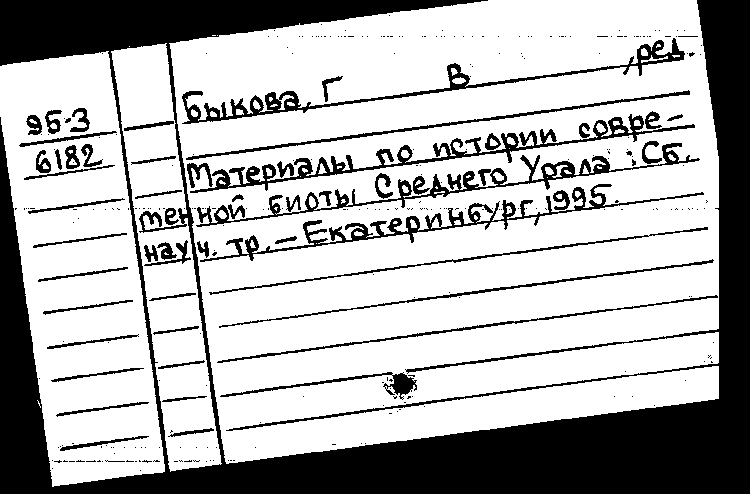 Быкова, Г В , ред.
95-3
6182
Материалы по истории совре-
менной биоты Среднего Урала : Сб.
науч. тр. - Екатеринбург, 1995.